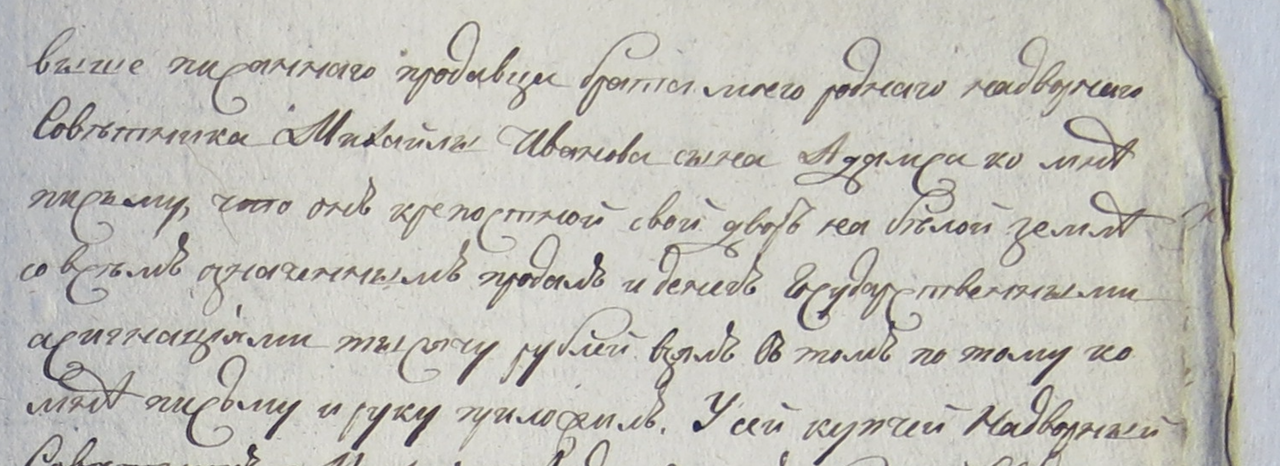 выше писаннаго продавца брата моего роднаго надворнаго
Советника Михайлы Иванова сына Адамса ко мнѣ
письму, что онъ крепостной свой дворъ на бѣлой землѣ
со всѣмъ означеннымъ продалъ и денегъ Государственными
асигнацïями тысячу рублей взялъ въ томъ по тому ко
мнѣ письму и руку приложилъ. У сей купчей Надворный